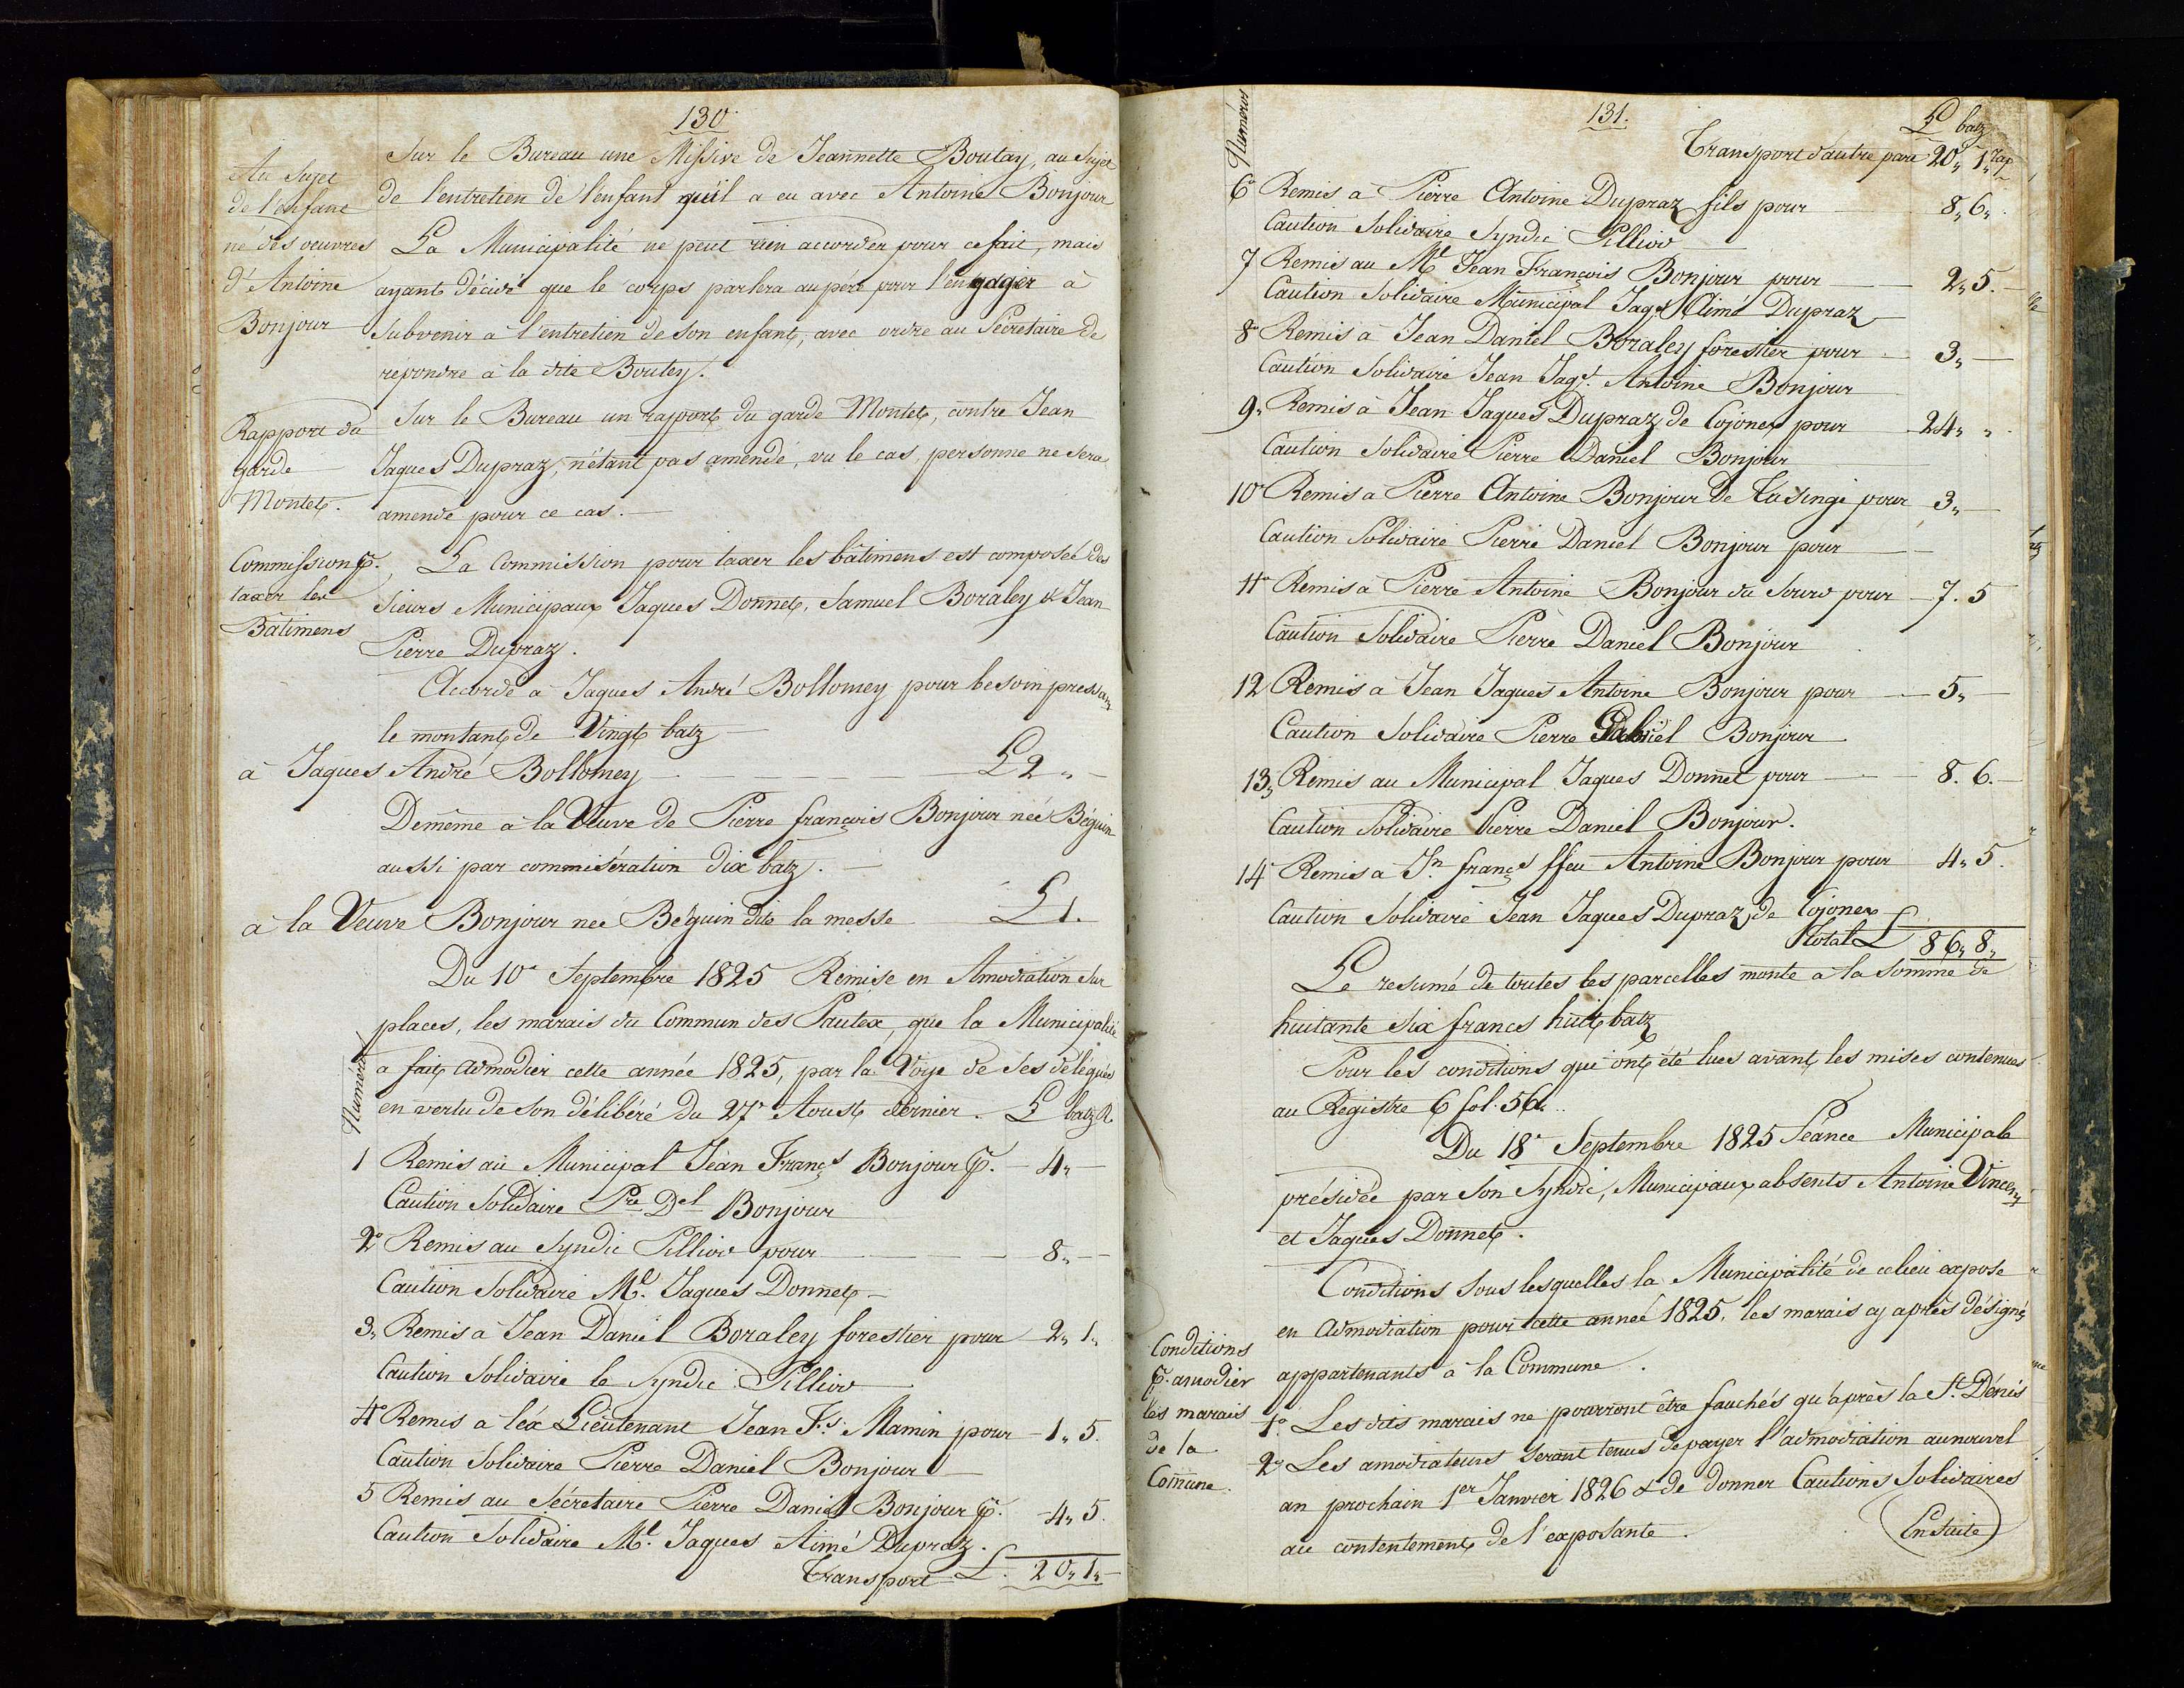 130.
Sur le Bureau une Missive de Jeannette Boutay, au Sujet
de l'entretien de l'enfant qu'il a eu avec Antoine Bonjour
La Municipalité ne peut rien accorder pour ce fait, mais
ayant décidé que le corps parlera au père pour l'engager à
Subvenir à l'entretien de son enfant, avec ordre au Sécretaire de
répondre à la dite Boutey.
Au Sujet
de l'enfant
né des oeuvres
d'Antoine
Bonjour
Sur le Bureau un raport du garde Montet, contre Jean
Jaques Dupraz, n'étant pas amendé, vu le cas, personne ne sera
amendé pour ce cas.
Rapport du
garde
Montet.
La Commission pour taxer les bâtimens est composée des
Sieurs Municipaux Jaques Donnet, Samuel Boraley & Jean
Pierre Dupraz.
Commission p.
taxer les
Bâtimens
Accordé à Jaques André Bollomey pour besoin pressant
le montant de Vingt batz
à Jaques André Bollomey L 2 " -
Demême à la Veuve de Pierre françois Bonjour née Béguin
aussi par commisération dix batz.
à la Veuve Bonjour née Béguin dite la messe L 1.
Du 10e Septembre 1825 Remise en Amodiation Sur
places, les marais du Commun des Pautex, que la Municipalité
a fait admodier cette année 1825, par la Voye de Ses délégués
en vertu de son délibéré du 27e Aoust dernier. L batz R
Numéros
1 Remis au Municipal Jean Franç.s Bonjour p. - 4 " -
Caution Solidaire Pre Del Bonjour
2° Remis au Syndic Pilliod pour 8 " -
Caution Solidaire M.l Jaques Donnet -
3 " Remis à Jean Daniel Boraley forestier pour 2 " 1 "
Caution Solidaire le Syndic Pilliod
4° Remis a l'éx Lieutenant Jean F.s Mamin pour - 1 " 5.
Caution Solidaire Pierre Daniel Bonjour
5 Remis au Sécretaire Pierre Daniel Bonjour p. - 4 " 5.
Caution Solidaire M.l Jaques Aimé Dupraz.
Transport L. 20 " 1 " -
131.
Numéros
L batz
Transport d'autre part 20 " 1 " rap
6° Remis à Pierre Antoine Dupraz fils pour 8 " 6 "
Caution Solidaire Syndic Pilliod
7 Remis au M.l Jean François Bonjour pour 2 " 5. -
Caution Solidaire Municipal Jaq.s Aimé Dupraz
8° Remis à Jean Daniel Boraley forestier pour 3 " -
Caution Solidaire Jean Jaq.s Antoine Bonjour
9 " Remis à Jean Jaques Dupraz de Cojonex pour 24 " " .
Caution Solidaire Pierre Daniel Bonjour
10° Remis à Pierre Antoine Bonjour de Tasinge pour 3 " -
Caution Solidaire Pierre Daniel Bonjour pour
11° Remis à Pierre Antoine Bonjour du Sourd pour - 7. 5
Caution Solidaire Pierre Daniel Bonjour
12 Remis à Jean Jaques Antoine Bonjour pour - 5 " -
Caution Solidaire Pierre Gabriel Bonjour
13 " Remis au Municipal Jaques Donnet pour 8. 6. -
Caution Solidaire Pierre Daniel Bonjour.
14 Remis à Jn franç.s ffeu Antoine Bonjour pour 4 " 5.
Caution Solidaire Jean Jaques Dupraz, de Cojonex
total L 86 " 8 "
Le resumé de toutes les parcelles monte à la Somme de
huitante Six francs huit batz
Pour les conditions qui ont été lues avant les mises contenues
au Registre 6 fol. 56.
Du 18e Septembre 1825 Séance Municipale
présidée par Son Syndic, Municipaux absents Antoine Vincent
et Jaques Donnet.
Conditions Sous lesquelles la Municipalité de ce lieu expose
en Admodiation pour cette année 1825, les marais cy après désignés
appartenants à la Commune.
Conditions
p. amodier
les marais
de la
Comune.
1° Les dits marais ne pourront être fauchés qu'après la St. Dénis
2° Les amodiateurs seront tenus de payer l'admodiation au nouvel
an prochain 1er Janvier 1826 & de donner Cautions Solidaires
au contentement de l'exposante.
Ensuite